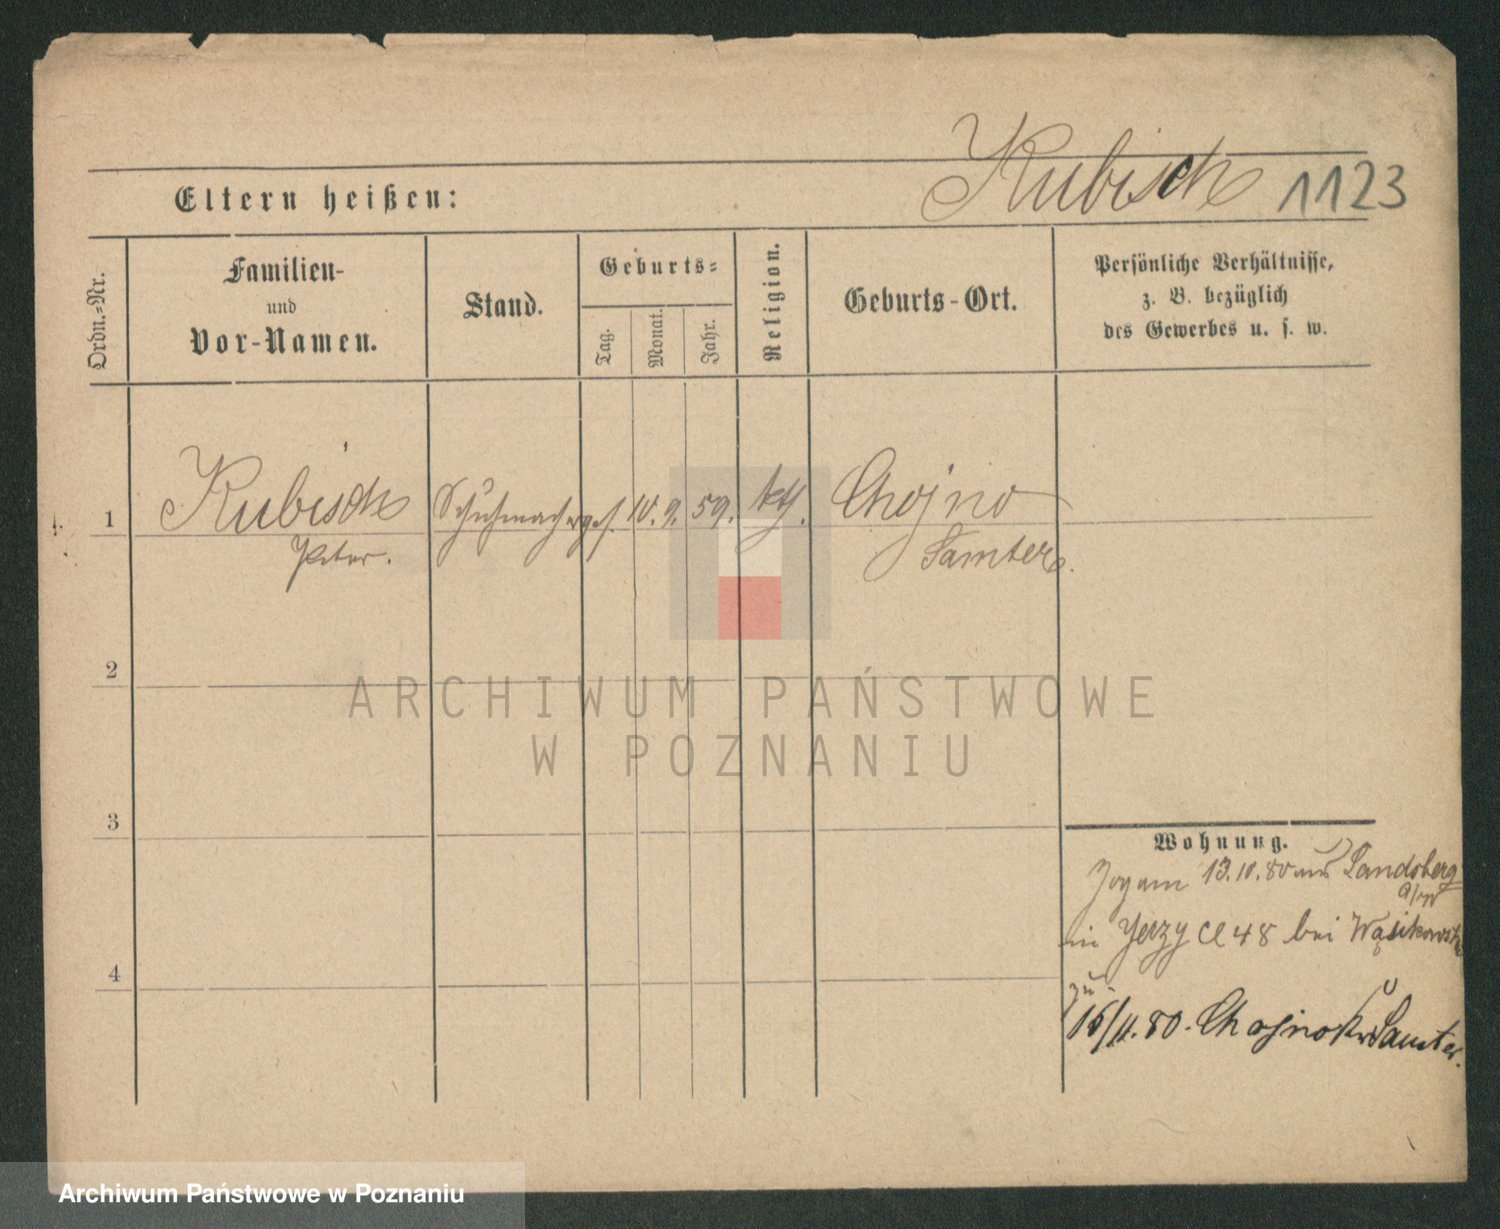 Kubisch 1123
Eltern heißen:
Ordn.-Nr.
Familien-
und
Vor-Namen.
Stand.
Geburts-
Tag.
Monat.
Jahr.
Religion.
Geburts-Ort.
Persönliche Verhältnisse,
z. B. bezüglich
des Gewerbes u. s. w.
1
Kubisch
Peter.
Schuhmacherges.
10. 9. 59.
kth.
Chojno
Samter.
2
3
4
Wohnung.
Zog am 13.10.80 aus Landsberg
a/W
in Jerzyce 48 bei Wąsikowski
15/11.80. Chojno Kr. Samter.
ARCHIWUM PAŃSTWOWE
W POZNANIU
Archiwum Państwowe w Poznaniu